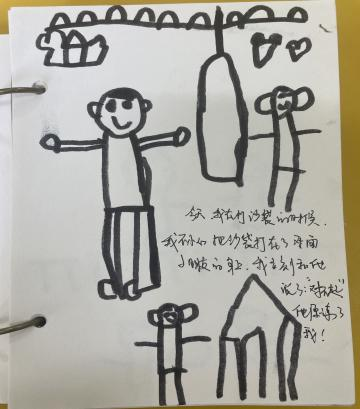 今天 我在打沙袋的时候.
我不小心 把沙袋打在了 后面
小朋友的身上. 我立刻和他
说了:"对不起"
他原谅了
我!